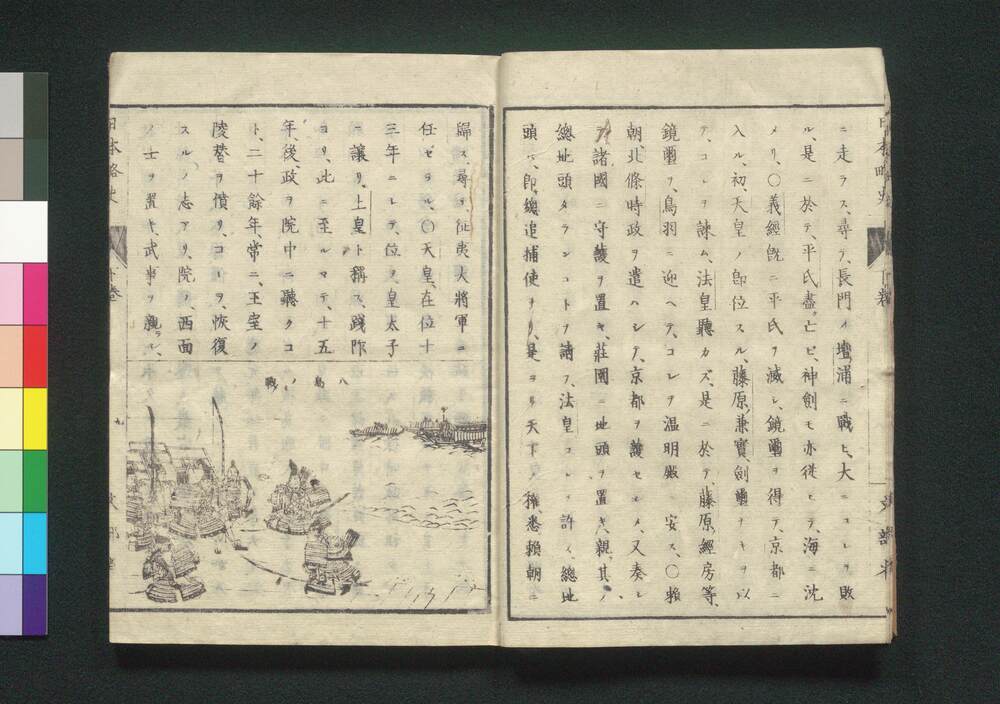 ニ走ラス、尋テ、長門ノ壇浦ニ戰ヒ、大ニコレヲ敗
ル、是ニ於テ、平氏盡ク亡ビ、神劍モ亦從ヒテ、海ニ沈
メリ、〇義經旣ニ平氏ヲ滅シ、鏡璽ヲ得テ、京都ニ
入ル、初、天皇ノ卽位スル、藤原兼實、劍璽ナキヲ以
テ、コレヲ諫ム、法皇聽カズ、是ニ於テ、藤原經房等、
鏡璽ヲ、鳥羽ニ迎ヘテ、コレヲ溫明殿ニ安ス、〇賴
朝、北條時政ヲ遣ハシテ、京都ヲ護セシメ、又奏シ
テ、諸國ニ守護ヲ置キ、莊園ニ地頭ヲ置キ、親其ノ
總地頭タランコトヲ請フ、法皇コレヲ許ス、總地
頭ハ、卽總追捕使ナリ、是ヨリ天下ノ權、悉賴朝ニ
日本略史
下卷
文部省
歸ス、尋テ征夷大將軍ニ
任ゼラル、〇天皇、在位十
三年ニシテ、位ヲ、皇太子
ニ讓リ、上皇ト稱ス、踐阼
ヨリ、此ニ至ルマデ、十五
年、後、政ヲ院中ニ聽クコ
ト、二十餘年、常ニ、王室ノ
陵替ヲ憤リ、コレヲ、恢復
スルノ志アリ、院ノ西面
ノ士ヲ置キ、武事ヲ親ラシ、
八島ノ戰
日本略史
下卷
九
文部省